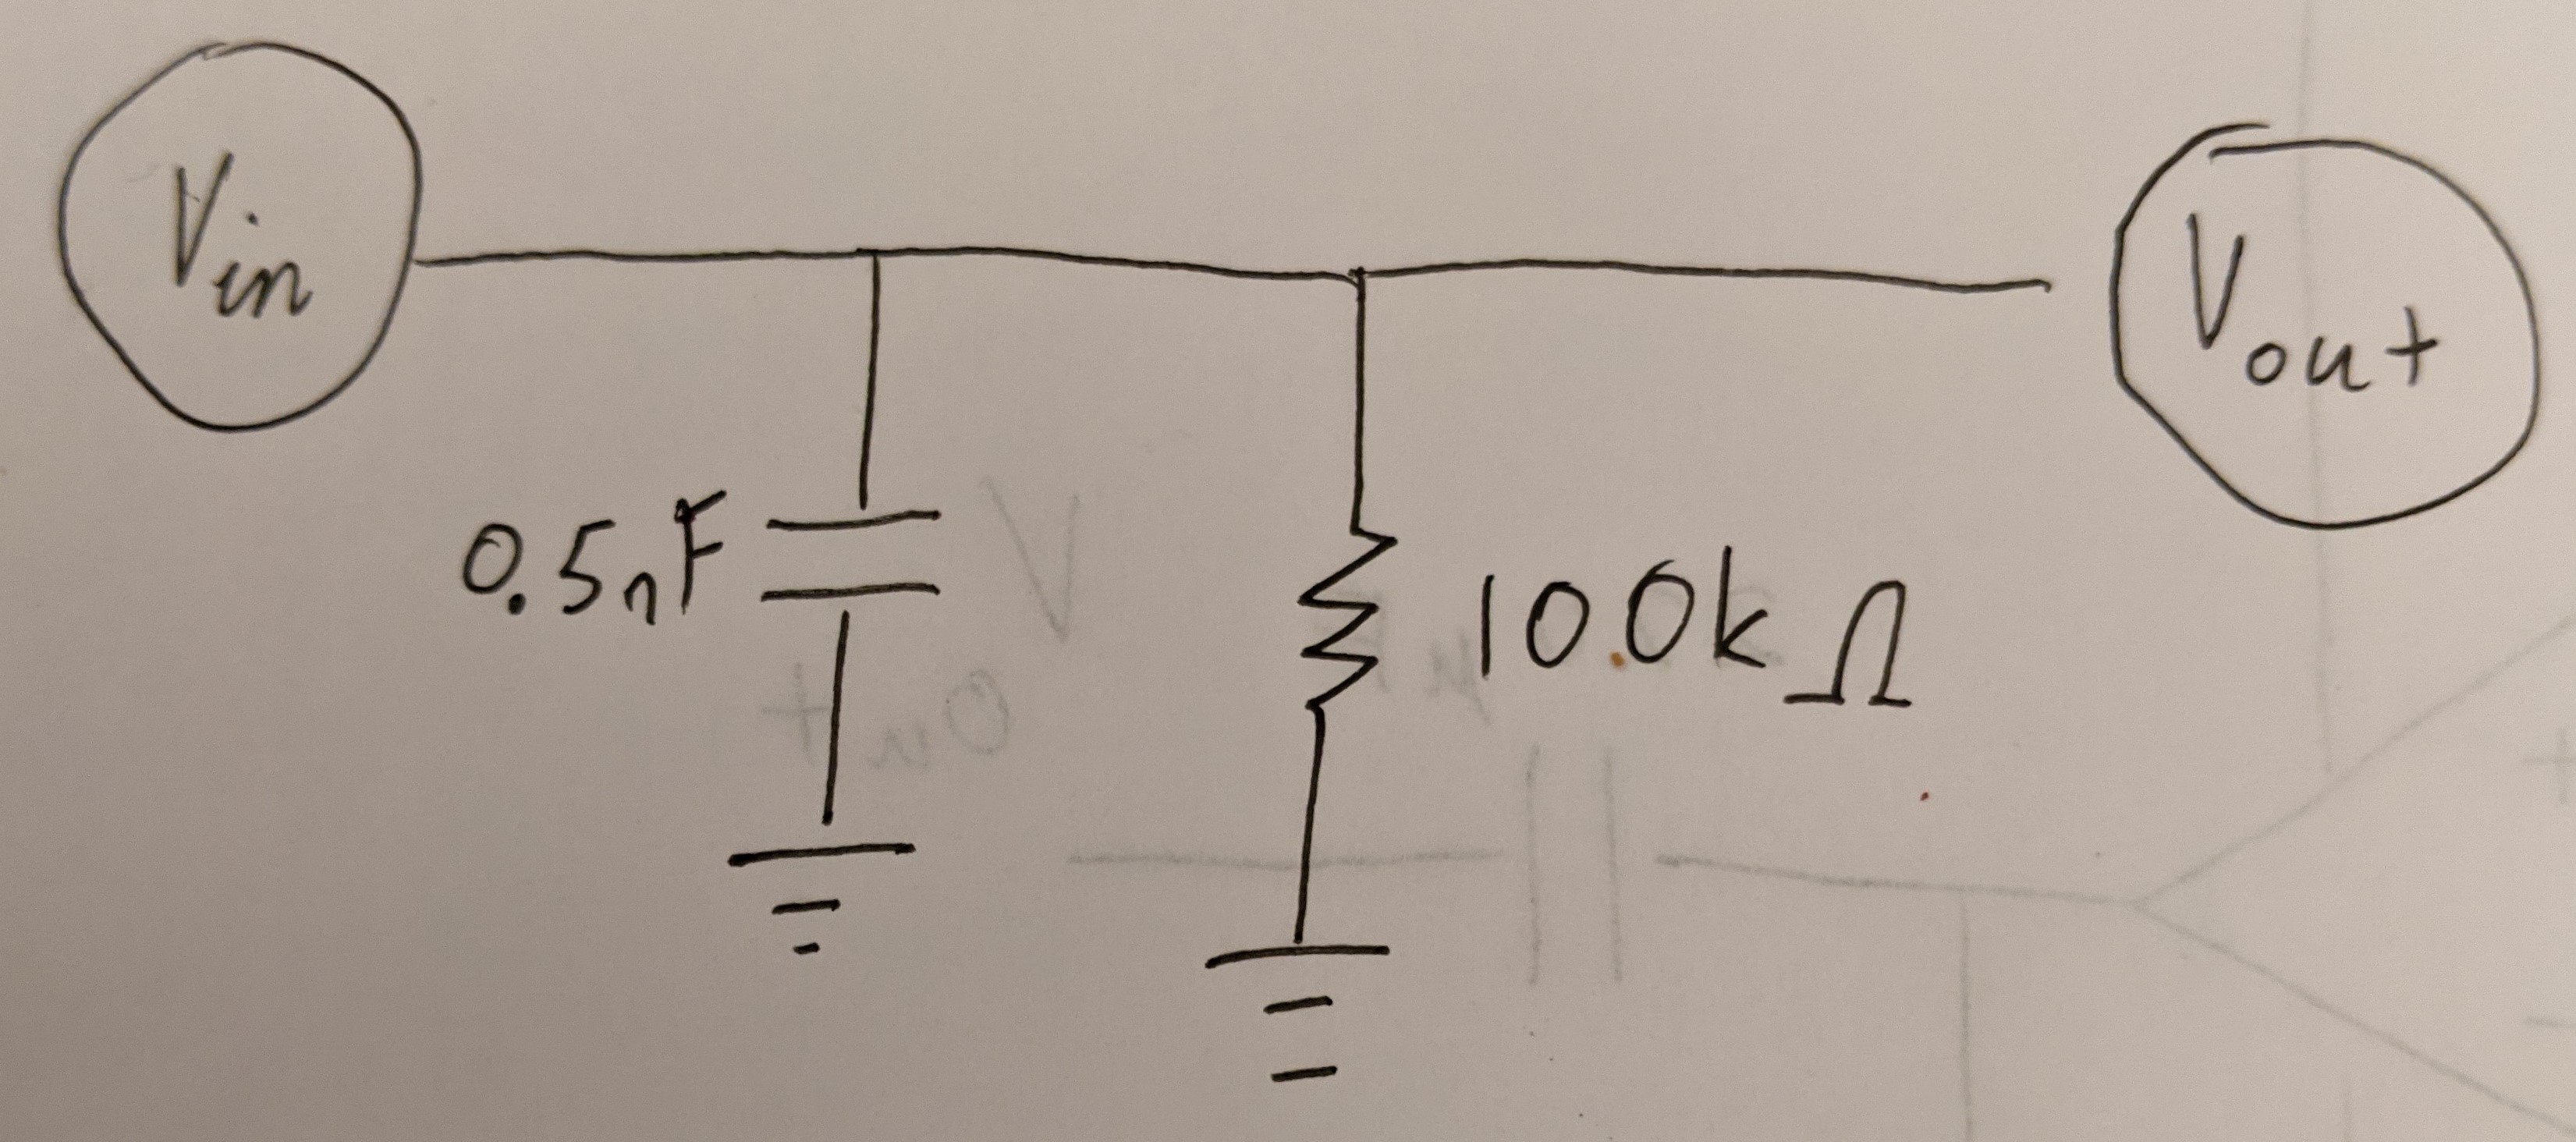 Vin
Vout
0.5nF
100kΩ